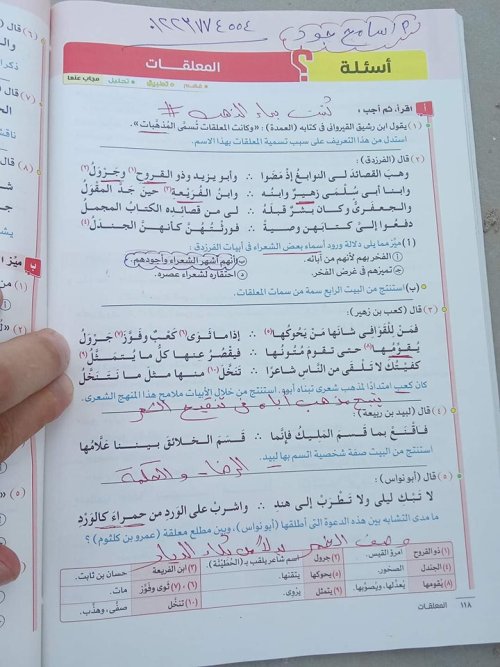 سامح جودة ٠١٢٢٢٧٧٤٥٥٤
أسئلة ؟ المعلقات
فهم • تطبيق • تحليل • مجاب عنها
أ اقرأ، ثم أجب :
كتبت بماء الذهب #
(١) يقول ابن رشيق القيرواني في كتابه (العمدة) : «وكانت المعلقات تسمى المذهَّبات».
استدل من هذا التعريف على سبب تسمية المعلقات بهذا الاسم.
(٢) قال (الفرزدق) :
وهب القصائد لي النوابغ إذ مضوا ∴ وأبو يزيد وذو القروح(١) وجرول(٢)
وابنا أبي سلمى زهير وابنه ∴ وابن الفريعة(٣) حين جد المقول
والجعفري وكان بشر قبله ∴ لي من قصائده الكتاب المجمل
دفعوا إلي كتابهن وصية ∴ فورثتهن كأنهن الجندل(٤)
(١) ميّز مما يلي دلالة ورود أسماء بعض الشعراء في أبيات الفرزدق :
أ. الفخر بهم لأنهم من آبائه. ب. أنهم أشهر الشعراء وأجودهم.
ج. تميزهم في غرض الفخر. د. احتقاره لشعراء عصره.
(ب) استنتج من البيت الرابع سمة من سمات المعلقات.
(٣) قال (كعب بن زهير) :
فمن للقوافي شانها من يحوكها(٥) ∴ إذا ما ثوى(٦) كعب وفوز(٧) جرول
يقومها(٨) حتى تقوم متونها ∴ فيقصر عنها كل ما يتمثل(٩)
كفيتك لا تلقى من الناس شاعرا ∴ تنخل(١٠) منها مثل ما نتنخل
كان كعب امتدادًا لمذهب شعري تبناه أبوه. استنتج من خلال الأبيات ملامح هذا المنهج الشعري.
يتبع مذهب أباه في تنقيح الشعر
(٤) قال (لبيد بن ربيعة) :
فاقنع بما قسم المليك فإنما ∴ قسم الخلائق بيننا علامها
استنتج من البيت صفة شخصية اتسم بها لبيد.
الرضا - والحكمة
(٥) قال (أبو نواس) :
لا تبك ليلى ولا تطرب إلى هند ∴ واشرب على الورد من حمراء كالورد
ما مدى التشابه بين هذه الدعوة التي أطلقها (أبو نواس)، وبين مطلع معلقة (عمرو بن كلثوم) ؟
وصف الخمر بدلا من بكاء الديار
(١) ذو القروح امرؤ القيس. (٢) جرول اسم شاعر يلقب بـ (الحطيئة). (٣) ابن الفريعة حسان بن ثابت.
(٤) الجندل الصخور. (٥) يحوكها يتقنها. (٦) ، (٧) ثوى وفوز مات.
(٨) يقومها يُعدّلها، ويصوّبها. (٩) يتمثل يُروى. (١٠) تنخل صفّى، وهذّب.
١١٨ المعلقات